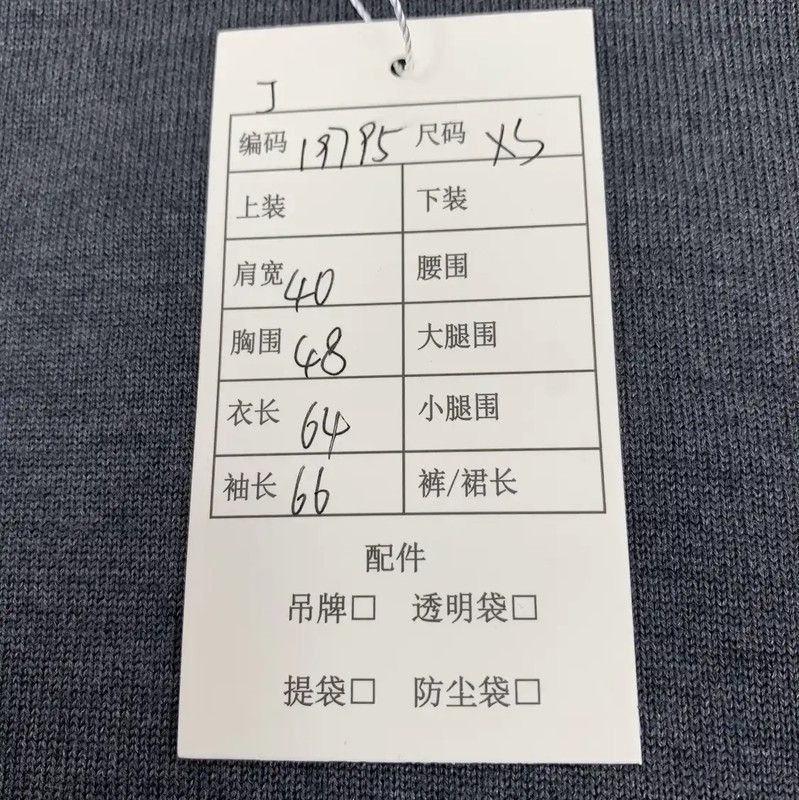 J
编码 19795 尺码 XS
上装 下装
肩宽 40 腰围
胸围 48 大腿围
衣长 64 小腿围
袖长 66 裤/裙长
配件
吊牌□ 透明袋□
提袋□ 防尘袋□